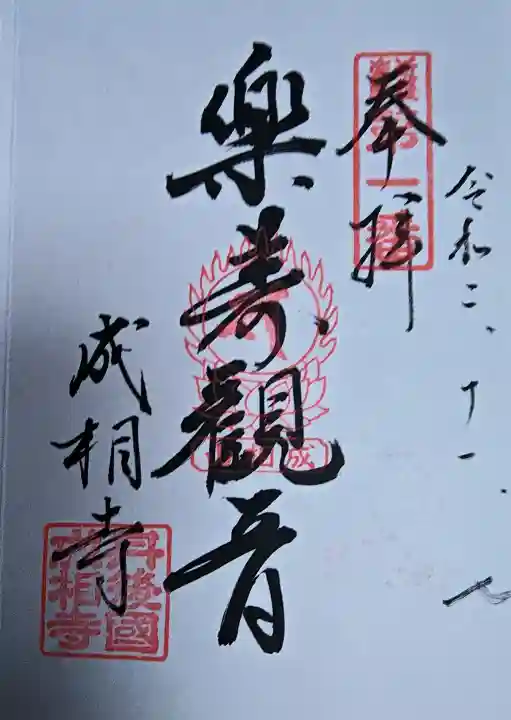 令和二、十一、七
奉拝
樂寿観音
成相寺
丹後國
成相寺